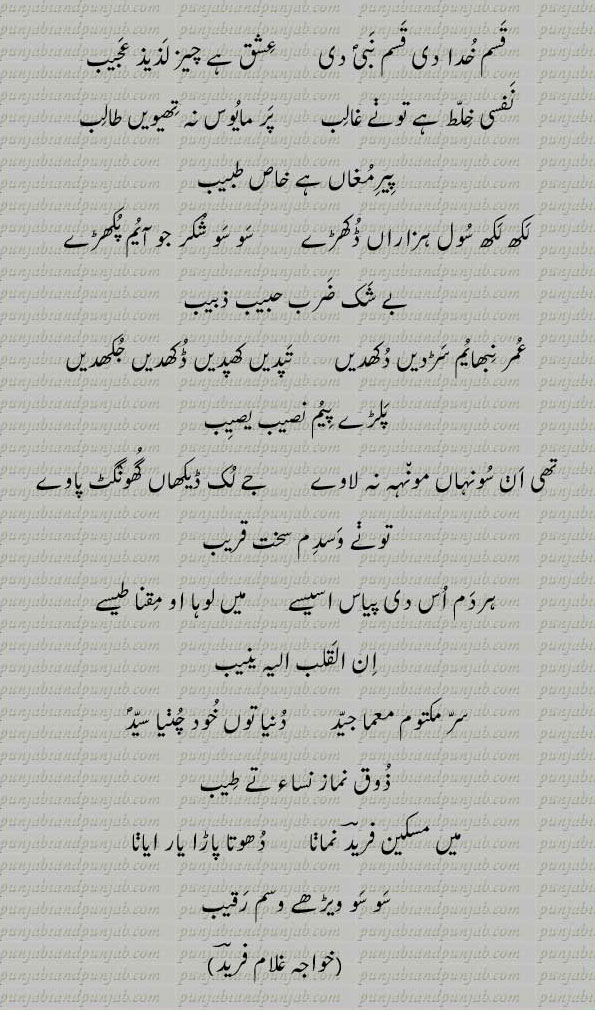 قَسم خُدا دی قَسم نَبیؐ دی عِشق ہے چیز لَذیذ عَجیب
نَفسی خِلّط ہے توݨے غالِب پَر مایُوس نہ تِھیویں طالِب
پِیرِمُغاں ہے خاص طبیب
لَکھ لَکھ سُول ہزاراں ڈُکھڑے سَو سَو شُکر جو آیُم پُکھڑے
بے شَک ضَرب حبیب ذبیب
عُمر نِبھایُم سَڑدیں دُکھدیں تَپدیں کھپدیں ڈُکھدیں جُکھدیں
پَلڑے پِیُم نصیب یصیِب
تھی اَݨ سُونہاں مونہہ نہ لاوے جے لُک ڈیکھاں گُھونگٹ پاوے
توݨے وَسدِم سخت قریب
ہردَم اُس دی پیاس اسیسے میں لوہا او مِقنا طیسے
اِن القَلب الیہ ینیب
سرّ مکتوم معما جیّد دُنیا توں خُود چُݨیا سیّدؐ
ذُوق نماز نساء تے طِیب
میں مسکین فریدؔ نماݨا دُھوتا پاڑا یار ایاݨا
سَو سَو ویڑھے وسم رَقیب
(خواجہ غلام فریدؔ)
punjabiandpunjab.com